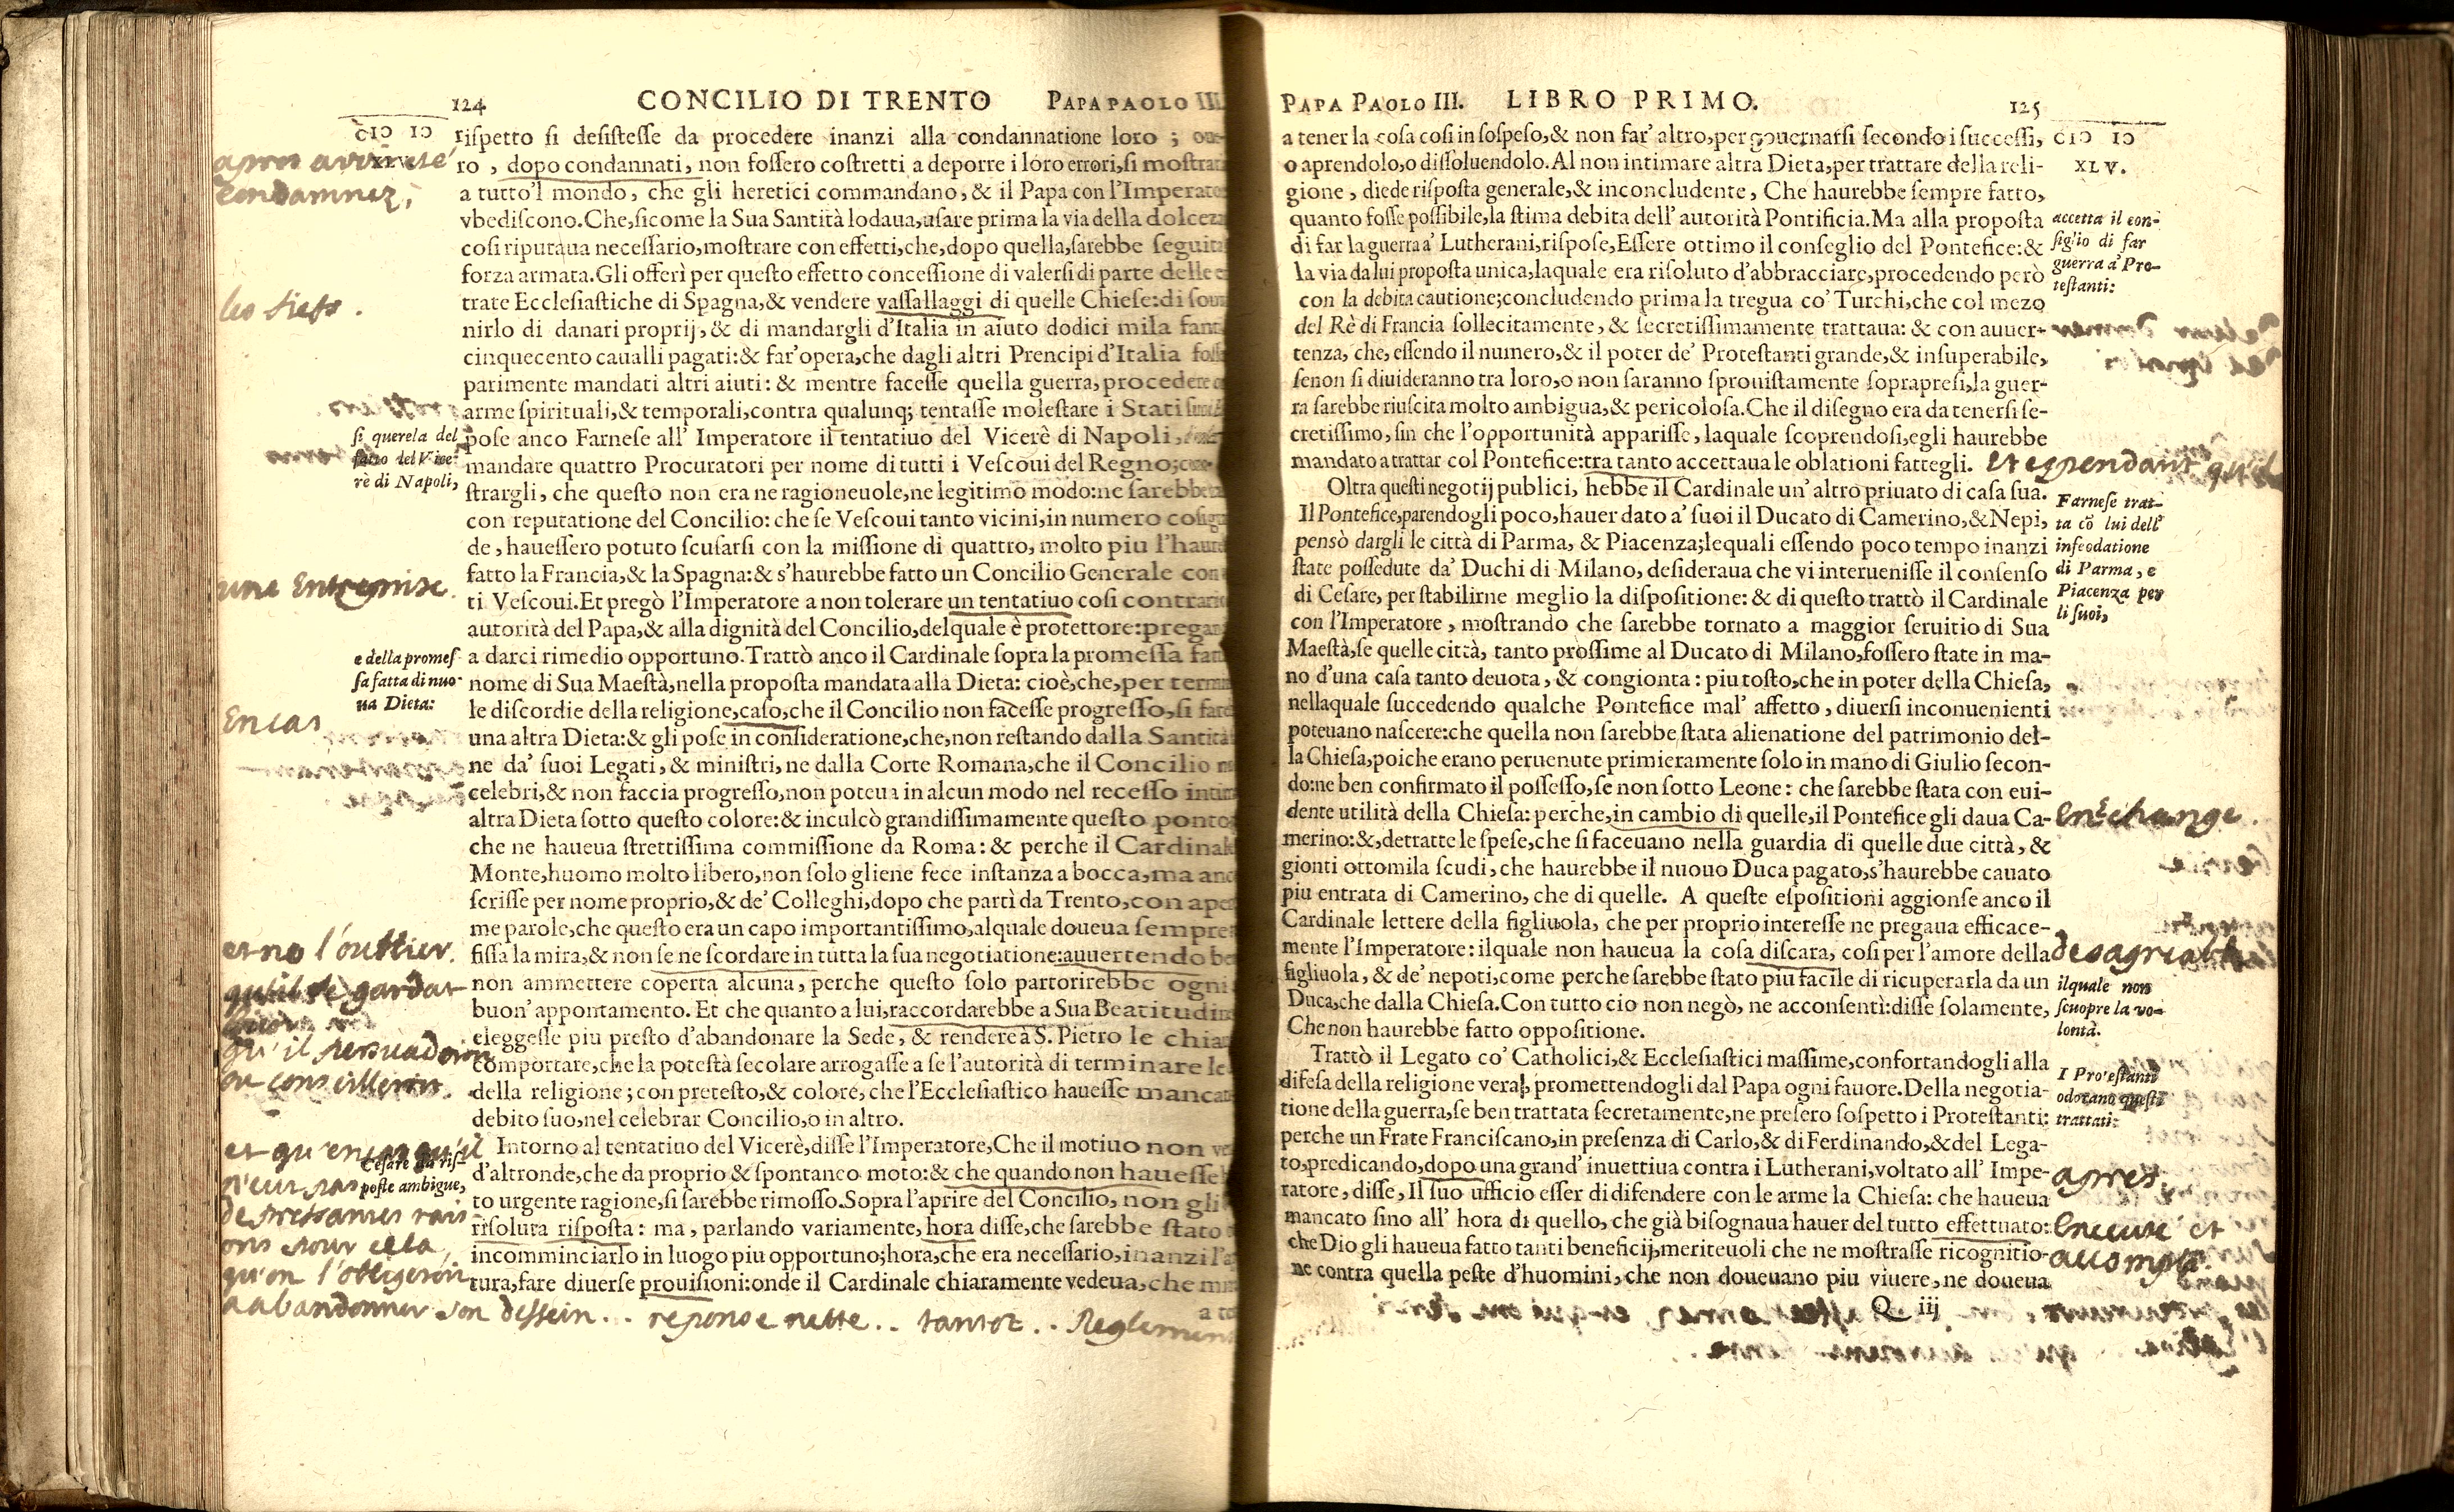 124 CONCILIO DI TRENTO PAPA PAOLO III.
CIↃ IↃ
rispetto si desistesse da procedere inanzi alla condannatione loro ; oue-
apres avoir esté
ro , dopo condannati, non fossero costretti a deporre i loro errori, si mostrat
condamnez;
a tutto'l mondo, che gli heretici commandano, & il Papa con l'Imperato
vbediscono. Che, sicome la Sua Santità lodaua, usare prima la via della dolcez
cosi riputaua necessario, mostrare con effetti, che, dopo quella, sarebbe seguita
forza armata. Gli offerì per questo effetto concessione di valersi di parte delle e
trate Ecclesiastiche di Spagna, & vendere vassallaggi di quelle Chiese: di sou
les fiefs .
nirlo di danari proprij, & di mandargli d'Italia in aiuto dodici mila fant
cinquecento caualli pagati: & far' opera, che dagli altri Prencipi d'Italia foss
parimente mandati altri aiuti: & mentre facesse quella guerra, procedere
arme spirituali, & temporali, contra qualunq; tentasse molestare i Stati
si querela del
fatto del Vice-
rè di Napoli,
pose anco Farnese all' Imperatore il tentatiuo del Vicerè di Napoli,
mandare quattro Procuratori per nome di tutti i Vescoui del Regno;
strargli, che questo non era ne ragioneuole, ne legitimo modo: ne sarebbe
con reputatione del Concilio: che se Vescoui tanto vicini, in numero cosi
de, hauessero potuto scusarsi con la missione di quattro, molto piu l'hau
fatto la Francia, & la Spagna: & s'haurebbe fatto un Concilio Generale con
une Entreprise.
ti Vescoui. Et pregò l'Imperatore a non tolerare un tentatiuo cosi contrari
autorità del Papa, & alla dignità del Concilio, delquale è protettore: pregan
e della promes-
sa fatta di nuo-
ua Dieta:
a darci rimedio opportuno. Trattò anco il Cardinale sopra la promessa fatt
nome di Sua Maestà, nella proposta mandata alla Dieta: cioè, che, per termi
le discordie della religione, caso, che il Concilio non facesse progresso, si far
En cas
una altra Dieta: & gli pose in consideratione, che, non restando dalla Santità
ne da' suoi Legati, & ministri, ne dalla Corte Romana, che il Concilio n
celebri, & non faccia progresso, non poteua in alcun modo nel recesso intim
altra Dieta sotto questo colore: & inculcò grandissimamente questo ponto
che ne haueua strettissima commissione da Roma: & perche il Cardinale
Monte, huomo molto libero, non solo gliene fece instanza a bocca, ma anc
scrisse per nome proprio, & de' Colleghi, dopo che partì da Trento, con ape
me parole, che questo era un capo importantissimo, alquale doueua sempre
et no l'oublier.
fissa la mira, & non se ne scordare in tutta la sua negotiatione: auuertendo be
qu'il se gardat
non ammettere coperta alcuna, perche questo solo partorirebbe ogni
buon' appontamento. Et che quanto a lui, raccordarebbe a Sua Beatitudin
qu'il persuaderoit
ou conseilleroit.
eleggesse piu presto d'abandonare la Sede, & rendere à S. Pietro le chia
comportare, che la potestà secolare arrogasse a se l'autorità di terminare le
della religione; con pretesto, & colore, che l'Ecclesiastico hauesse mancat
debito suo, nel celebrar Concilio, o in altro.
et qu'en cas qu'il
n'eut pas
de pressantes rais-
ons pour cela,
qu'on l'obligeroit
Cesare dà ris-
poste ambigue,
Intorno al tentatiuo del Vicerè, disse l'Imperatore, Che il motiuo non ve
d'altronde, che da proprio & spontaneo moto: & che quando non hauesse
to urgente ragione, si sarebbe rimosso. Sopra l'aprire del Concilio, non gli
risoluta risposta: ma, parlando variamente, hora disse, che sarebbe stato
incomminciarlo in luogo piu opportuno; hora, che era necessario, inanzi l'a
tura, fare diuerse prouisioni: onde il Cardinale chiaramente vedeua, che
a te
a abandonner son dessein. . reponse nette. . tantot . . Reglemens
PAPA PAOLO III. LIBRO PRIMO. 125
a tener la cosa cosi in sospeso, & non far' altro, per gouernarsi secondo i successi,
CIↃ IↃ
XLV.
o aprendolo, o dissoluendolo. Al non intimare altra Dieta, per trattare della reli-
gione, diede risposta generale, & inconcludente, Che haurebbe sempre fatto,
quanto fosse possibile, la stima debita dell' autorità Pontificia. Ma alla proposta
accetta il con-
siglio di far
guerra a' Pro-
testanti:
di far la guerra a' Lutherani, rispose, Essere ottimo il conseglio del Pontefice: &
la via da lui proposta unica, laquale era risoluto d'abbracciare, procedendo però
con la debita cautione; concludendo prima la tregua co' Turchi, che col mezo
del Rè di Francia sollecitamente, & secretissimamente trattaua: & con auuer-
tenza, che, essendo il numero, & il poter de' Protestanti grande, & insuperabile,
senon si diuideranno tra loro, o non saranno sprouistamente soprapresi, la guer-
ra sarebbe riuscita molto ambigua, & pericolosa. Che il disegno era da tenersi se-
cretissimo, sin che l'opportunità apparisse, laquale scoprendosi, egli haurebbe
mandato a trattar col Pontefice: tra tanto accettaua le oblationi fattegli.
Et cependant qu'il
Oltra questi negotij publici, hebbe il Cardinale un' altro priuato di casa sua.
Farnese trat-
ta cō lui dell'
infeodatione
di Parma, e
Piacenza per
li suoi,
Il Pontefice, parendogli poco, hauer dato a' suoi il Ducato di Camerino, & Nepi,
pensò dargli le città di Parma, & Piacenza; lequali essendo poco tempo inanzi
state possedute da' Duchi di Milano, desideraua che vi interuenisse il consenso
di Cesare, per stabilirne meglio la dispositione: & di questo trattò il Cardinale
con l'Imperatore, mostrando che sarebbe tornato a maggior seruitio di Sua
Maestà, se quelle città, tanto prossime al Ducato di Milano, fossero state in ma-
no d'una casa tanto deuota, & congionta: piu tosto, che in poter della Chiesa,
nellaquale succedendo qualche Pontefice mal' affetto, diuersi inconuenienti
poteuano nascere: che quella non sarebbe stata alienatione del patrimonio del-
la Chiesa, poiche erano peruenute primieramente solo in mano di Giulio secon-
do: ne ben confirmato il possesso, se non sotto Leone: che sarebbe stata con eui-
dente utilità della Chiesa: perche, in cambio di quelle, il Pontefice gli daua Ca-
En échange.
merino: &, detratte le spese, che si faceuano nella guardia di quelle due città, &
gionti ottomila scudi, che haurebbe il nuouo Duca pagato, s'haurebbe cauato
piu entrata di Camerino, che di quelle. A queste espositioni aggionse anco il
Cardinale lettere della figliuola, che per proprio interesse ne pregaua efficace-
mente l'Imperatore: ilquale non haueua la cosa discara, cosi per l'amore della
desagreable
figliuola, & de' nepoti, come perche sarebbe stato piu facile di ricuperarla da un
ilquale non
scuopre la vo-
lontà.
Duca, che dalla Chiesa. Con tutto cio non negò, ne acconsentì: disse solamente,
Che non haurebbe fatto oppositione.
Trattò il Legato co' Catholici, & Ecclesiastici massime, confortandogli alla
I Protestanti
odorano questi
trattati:
difesa della religione vera, promettendogli dal Papa ogni fauore. Della negotia-
tione della guerra, se ben trattata secretamente, ne presero sospetto i Protestanti:
perche un Frate Franciscano, in presenza di Carlo, & di Ferdinando, & del Lega-
to, predicando, dopo una grand' inuettiua contra i Lutherani, voltato all' Impe-
apres.
ratore, disse, Il suo ufficio esser di difendere con le arme la Chiesa: che haueua
mancato sino all' hora di quello, che già bisognaua hauer del tutto effettuato:
Executé et
accompli.
che Dio gli haueua fatto tanti beneficij, meriteuoli che ne mostrasse ricognitio-
ne contra quella peste d'huomini, che non doueuano piu viuere, ne doueua
Q iij